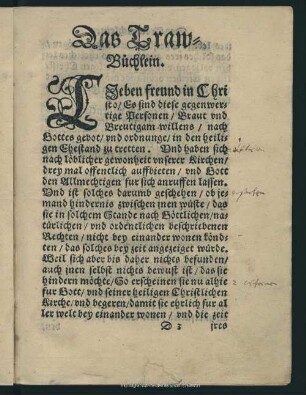 Das Traw-
Büchlein.
LIeben freund in Chri
sto/ Es sind diese gegenwer-
tige Personen/ Braut vnd
Breutigam willens/ nach
Gottes gebot/ vnd ordnunge/ in den heili-
gen Ehestand zu tretten. Vnd haben sich
nach löblicher gewonheit vnserer Kirchen/
drey mal offentlich auffbieten/ vnd Gott
den Allmechtigen fur sich anruffen lassen.
Vnd ist solches darumb geschehen/ ob je-
mand hindernis zwischen jnen wüste/ das
sie in solchem Stande nach Göttlichen/ na-
türlichen/ vnd ordentlichen beschriebenen
Rechten/ nicht bey einander wonen könd-
ten/ das solches bey zeit angezeiget würde.
Weil sich aber bis daher nichts befunden/
auch jnen selbst nichts bewust ist/ das sie
hindern möchte/ So erscheinen sie nu alhie
fur Gott/ vnd seiner heiligen Christlichen
Kirche/ vnd begeren/ damit sie ehrlich fur al
ler welt bey einander wonen/ vnd die zeit
D 2 jres